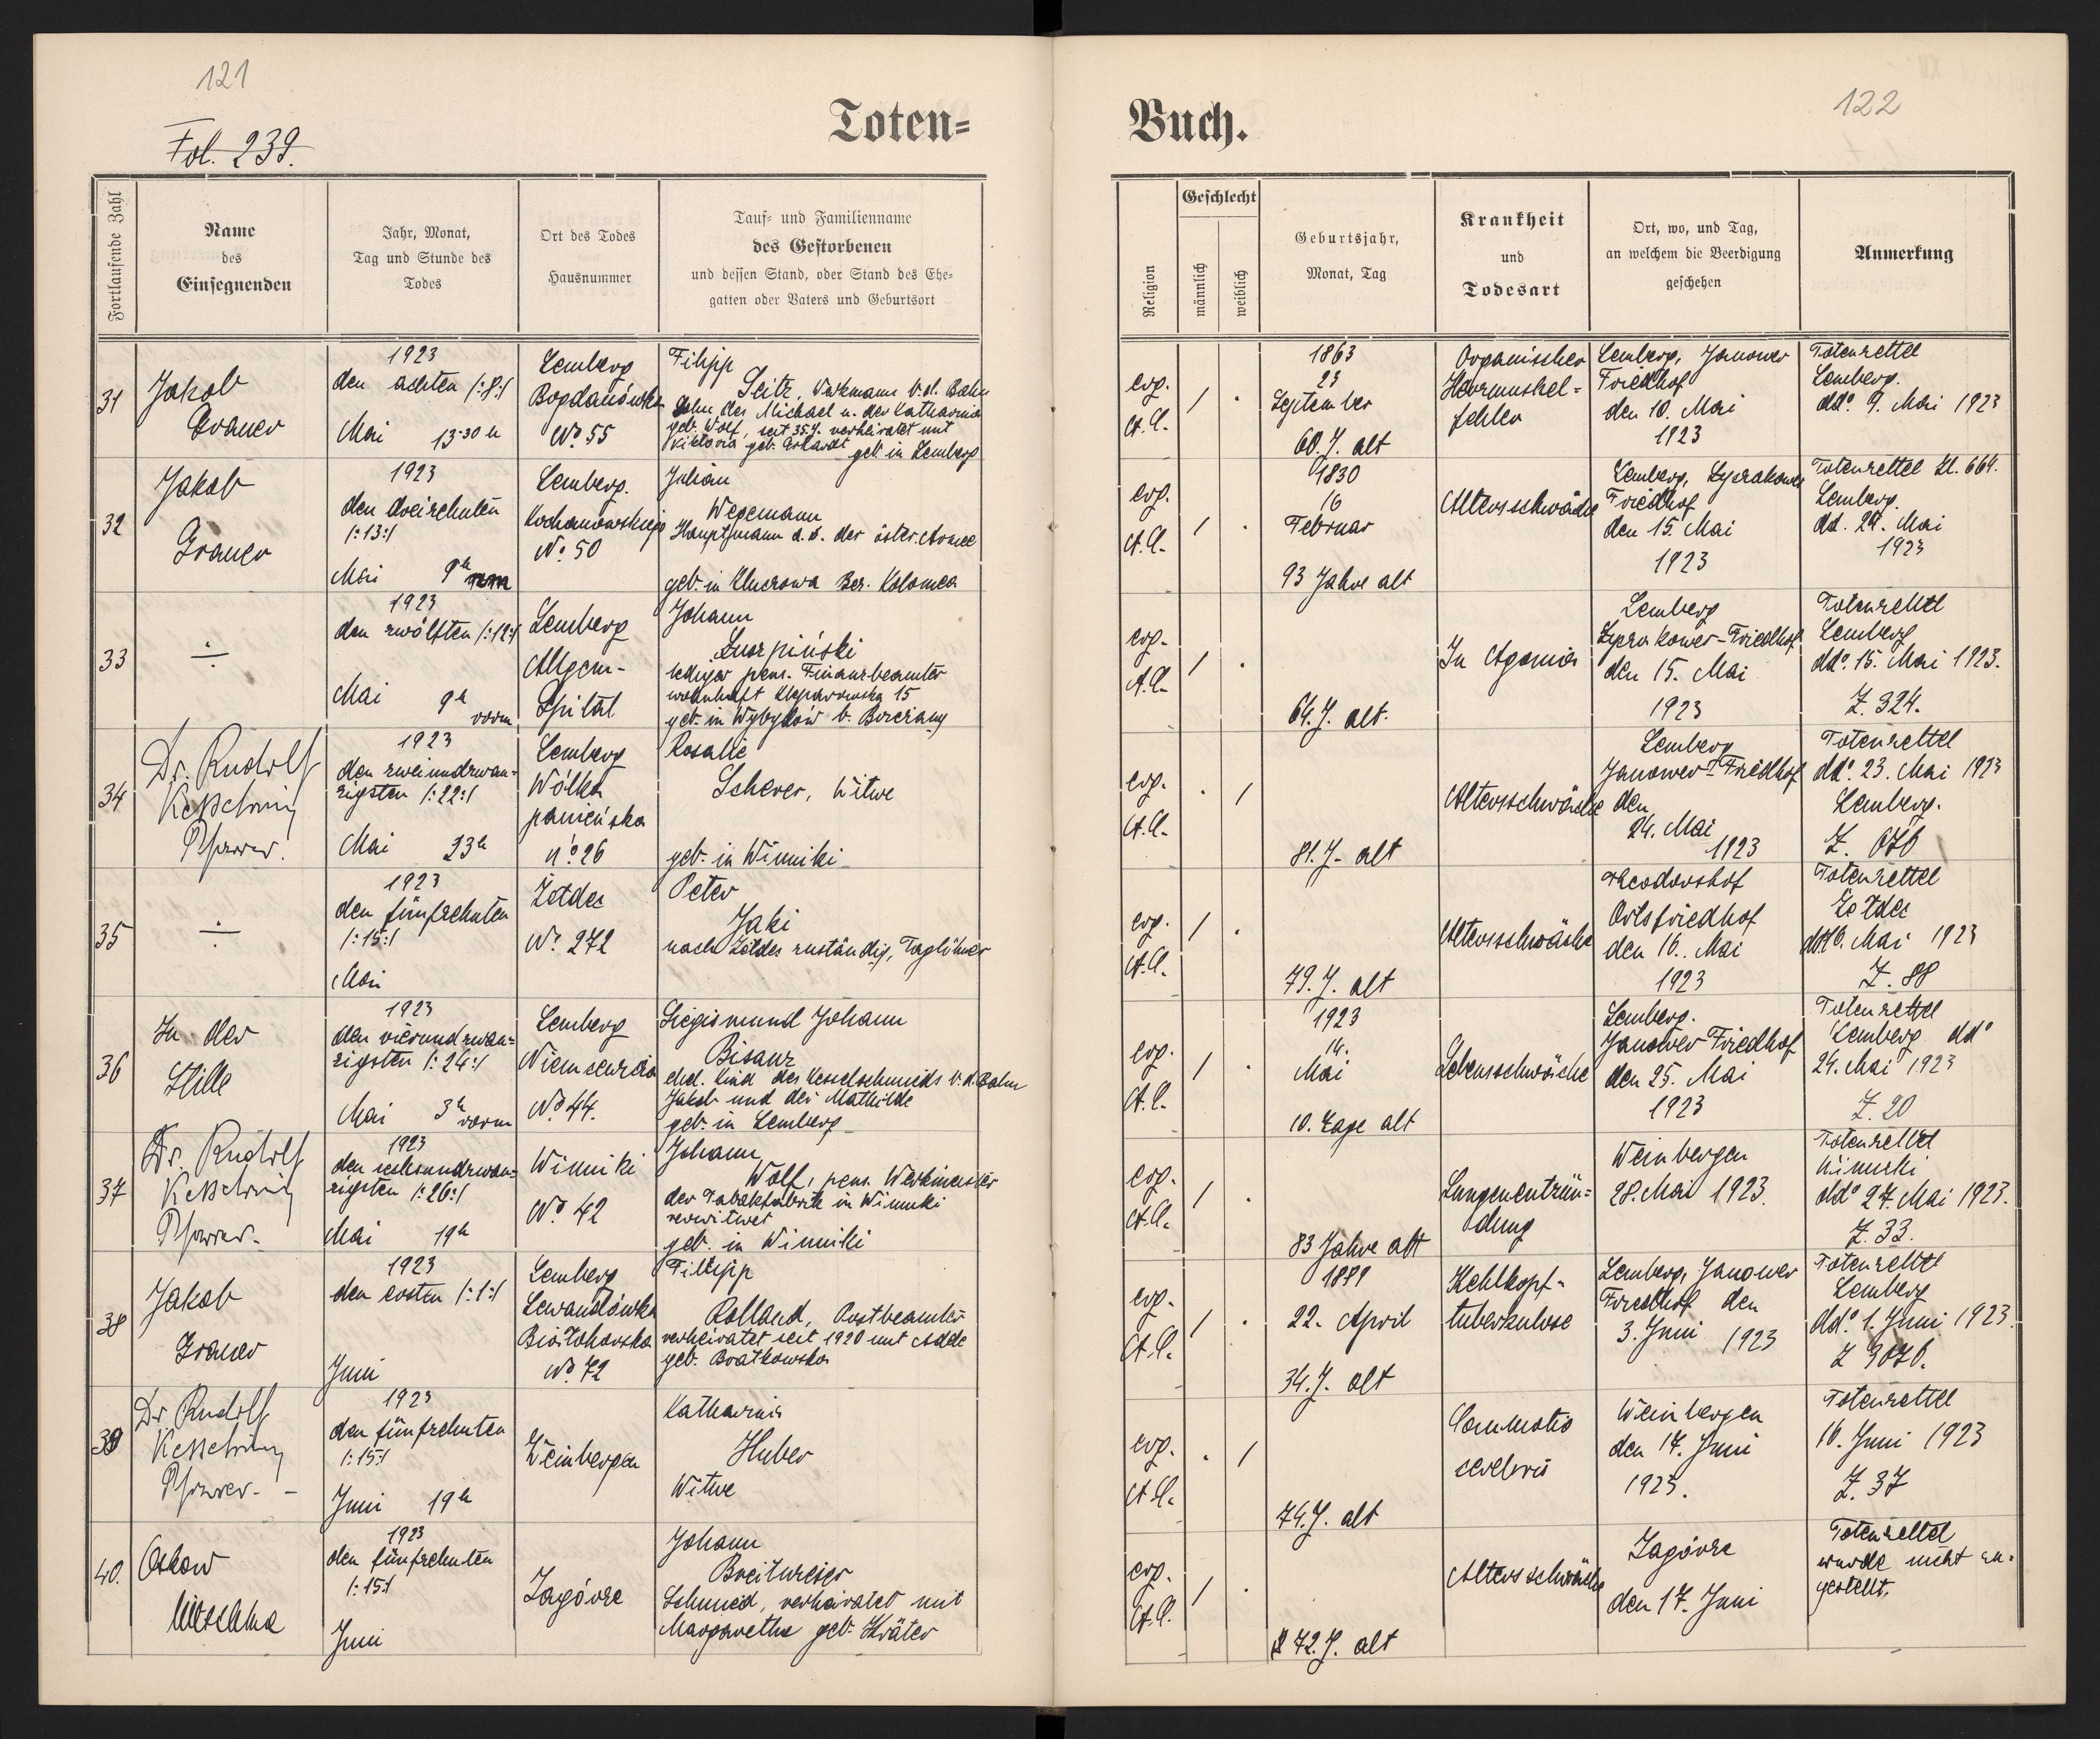 121
Fol. 239.
Toten=
Fortlaufende Zahl
Name
des
Einsegnenden
Jahr, Monat,
Tag und Stunde des
Todes
Ort des Todes
Hausnummer
Tauf= und Familienname
des Gestorbenen
und dessen Stand, oder Stand des Ehe=
gatten oder Vaters und Geburtsort
31
Jakob
Graner
1923
den achten /:8:/
Mai 13·30 h
Lemberg
Bogdanówka
No 55
Filipp
Seitz, Werkmann b. d. Bahn
Sohn des Michael u. der Katharina
geb. Wolf, seit 35 J. verheiratet mit
Viktoria geb. Erhardt geb. in Lemberg
32
Jakob
Graner
1923
den dreizehnten
/:13:/
Mai 9h
Lemberg.
Kochanowskiego
No 50
Julian
Wegemann
Hauptmann d. R. der öster. Armee
geb. in Kluczowa Bez. Kolomea
33
÷
1923
den zwölften /:12:/
Mai 9h
vorm
Lemberg
Allgem-
Spital
Johann
lediger pens. Finanzbeamter
wohnhaft Kleparowska 15
geb. in Wybyków b.
34
Dr. Rudolf
Kesselring
Pfarrer.
1923
den zweiundzwan-
zigsten /:22:/
Mai 23h
Lemberg
Wólka
panieńska
No 26
Rosalie
Scherer, Witwe
geb. in Winniki
35
÷
1923
den fünfzehnten
/:15:/
Mai
Żółdec
No. 272
Peter
Jaki
nach Żółdec zuständig, Taglöhner
36
In der
Stille
1923
den vierundzwan=
zigsten /:24:/
Mai 3h
vorm
Lemberg
No 44.
Siegismund Johann
Bisanz
ehel. Kind des Kesselschmieds b. d. Bahn
Jakob und der Mathilde
geb. in Lemberg
37
Dr. Rudolf
Kesselring
Pfarrer.
1923
den sechsundzwan=
zigsten /:26:/
Mai 19h
Winniki
No 42
Johann
Wolf, pens. Werkmeister
der Tabakfabrik in Winniki
verwitwet
geb. in Winniki
38
Jakob
Graner
1923
den ersten /:1:/
Juni
Lemberg
Lewandówka
Białohorska
No. 72
Filipp
Rolland, Postbeamter
verheiratet seit 1920 mit Adele
geb. Bratkowska
39
Dr Rudolf
Kesselring
Pfarrer.-
1923
den fünfzehnten
/:15:/
Juni 19h
Weinbergen
Katharina
Huber
Witwe
40.
Oskar
1923
den fünfzehnten
/:15:/
Juni
Zagórze
Johann
Schmied, verheiratet mit
Margarethe geb. Kräter
122
Buch.
Religion
Geschlecht
männlich
weiblich
Geburtsjahr,
Monat, Tag
Krankheit
und
Todesart
Ort, wo, und Tag,
an welchem die Beerdigung
geschehen
Anmerkung
evg.
A.C.
/ .
1863
23
September
60. J. alt
Organischer
Herzmuskel=
fehler
Lemberg, Janower
Friedhof
den 10. Mai
1923
Totenzettel
Lemberg.
ddo. 9. Mai 1923
evg.
A.C.
/ .
1830
16
Februar
93 Jahre alt
Altersschwäche
Lemberg, Lyczakower
Friedhof
den 15. Mai
1923
Totenzettel Zl. 664.
Lemberg.
dd. 24. Mai
1923
evg.
A.C.
/ .
64. J. alt.
In Agonia
Lemberg
Lyczakower-Friedhof
den 15. Mai
1923
Totenzettel
Lemberg
ddo. 15. Mai 1923.
Z. 324.
evg.
A.C.
. /
81. J. alt
Altersschwäche
Lemberg
Janower-Friedhof
den
24. Mai
1923
Totenzettel
ddo. 23. Mai 1923
Lemberg.
evg.
A.C.
/ .
79. J. alt
Altersschwäche
Theodorshof
Ortsfriedhof
den 16. Mai
1923
Totenzettel
Żółdec
ddo 16. Mai 1923
Z. 88
evg.
A.C.
/ .
1923
14.
Mai
10. Tage alt
Lebensschwäche
Lemberg.
Janower Friedhof
den 25. Mai
1923
Totenzettel
Lemberg ddo
24. Mai 1923
Z. 20
evg.
A.C.
/ .
83 Jahre alt
Lungenentzün=
dung
Weinbergen
28. Mai 1923.
Totenzettel
Winniki
ddo 27. Mai 1923.
Z. 33.
evg.
A.C.
/ .
1889
22. April
34. J. alt
Kehlkopf-
tuberkulose
Lemberg, Janower
Friedhof den
3. Juni 1923
Totenzettel
Lemberg
ddo. 1. Juni 1923.
evg.
A.C.
. /
74. J. alt
Commotio
cerebris
Weinbergen
den 17. Juni
1923.
Totenzettel
16. Juni 1923
Z. 37
evg.
A.C.
/ .
72. J. alt
Altersschwäche
Zagórze
den 17. Juni
Totenzettel
wurde nicht zu-
gestellt.